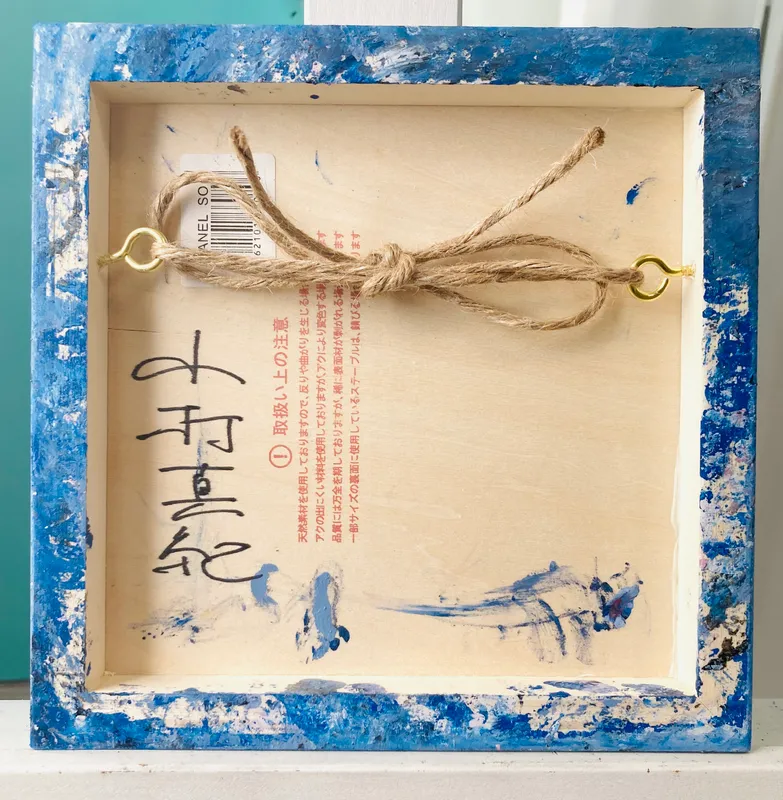 ANEL SO
6210
取扱い上の注意
天然素材を使用しておりますので、反りや曲がりを生じる場 ます
アクの出にくい材料を使用しておりますが、アクにより変色する場 ます
品質には万全を期しておりますが、稀に表面材が剥がれる場 ます
一部サイズの裏面に使用しているステープルは、錆びる場 ます